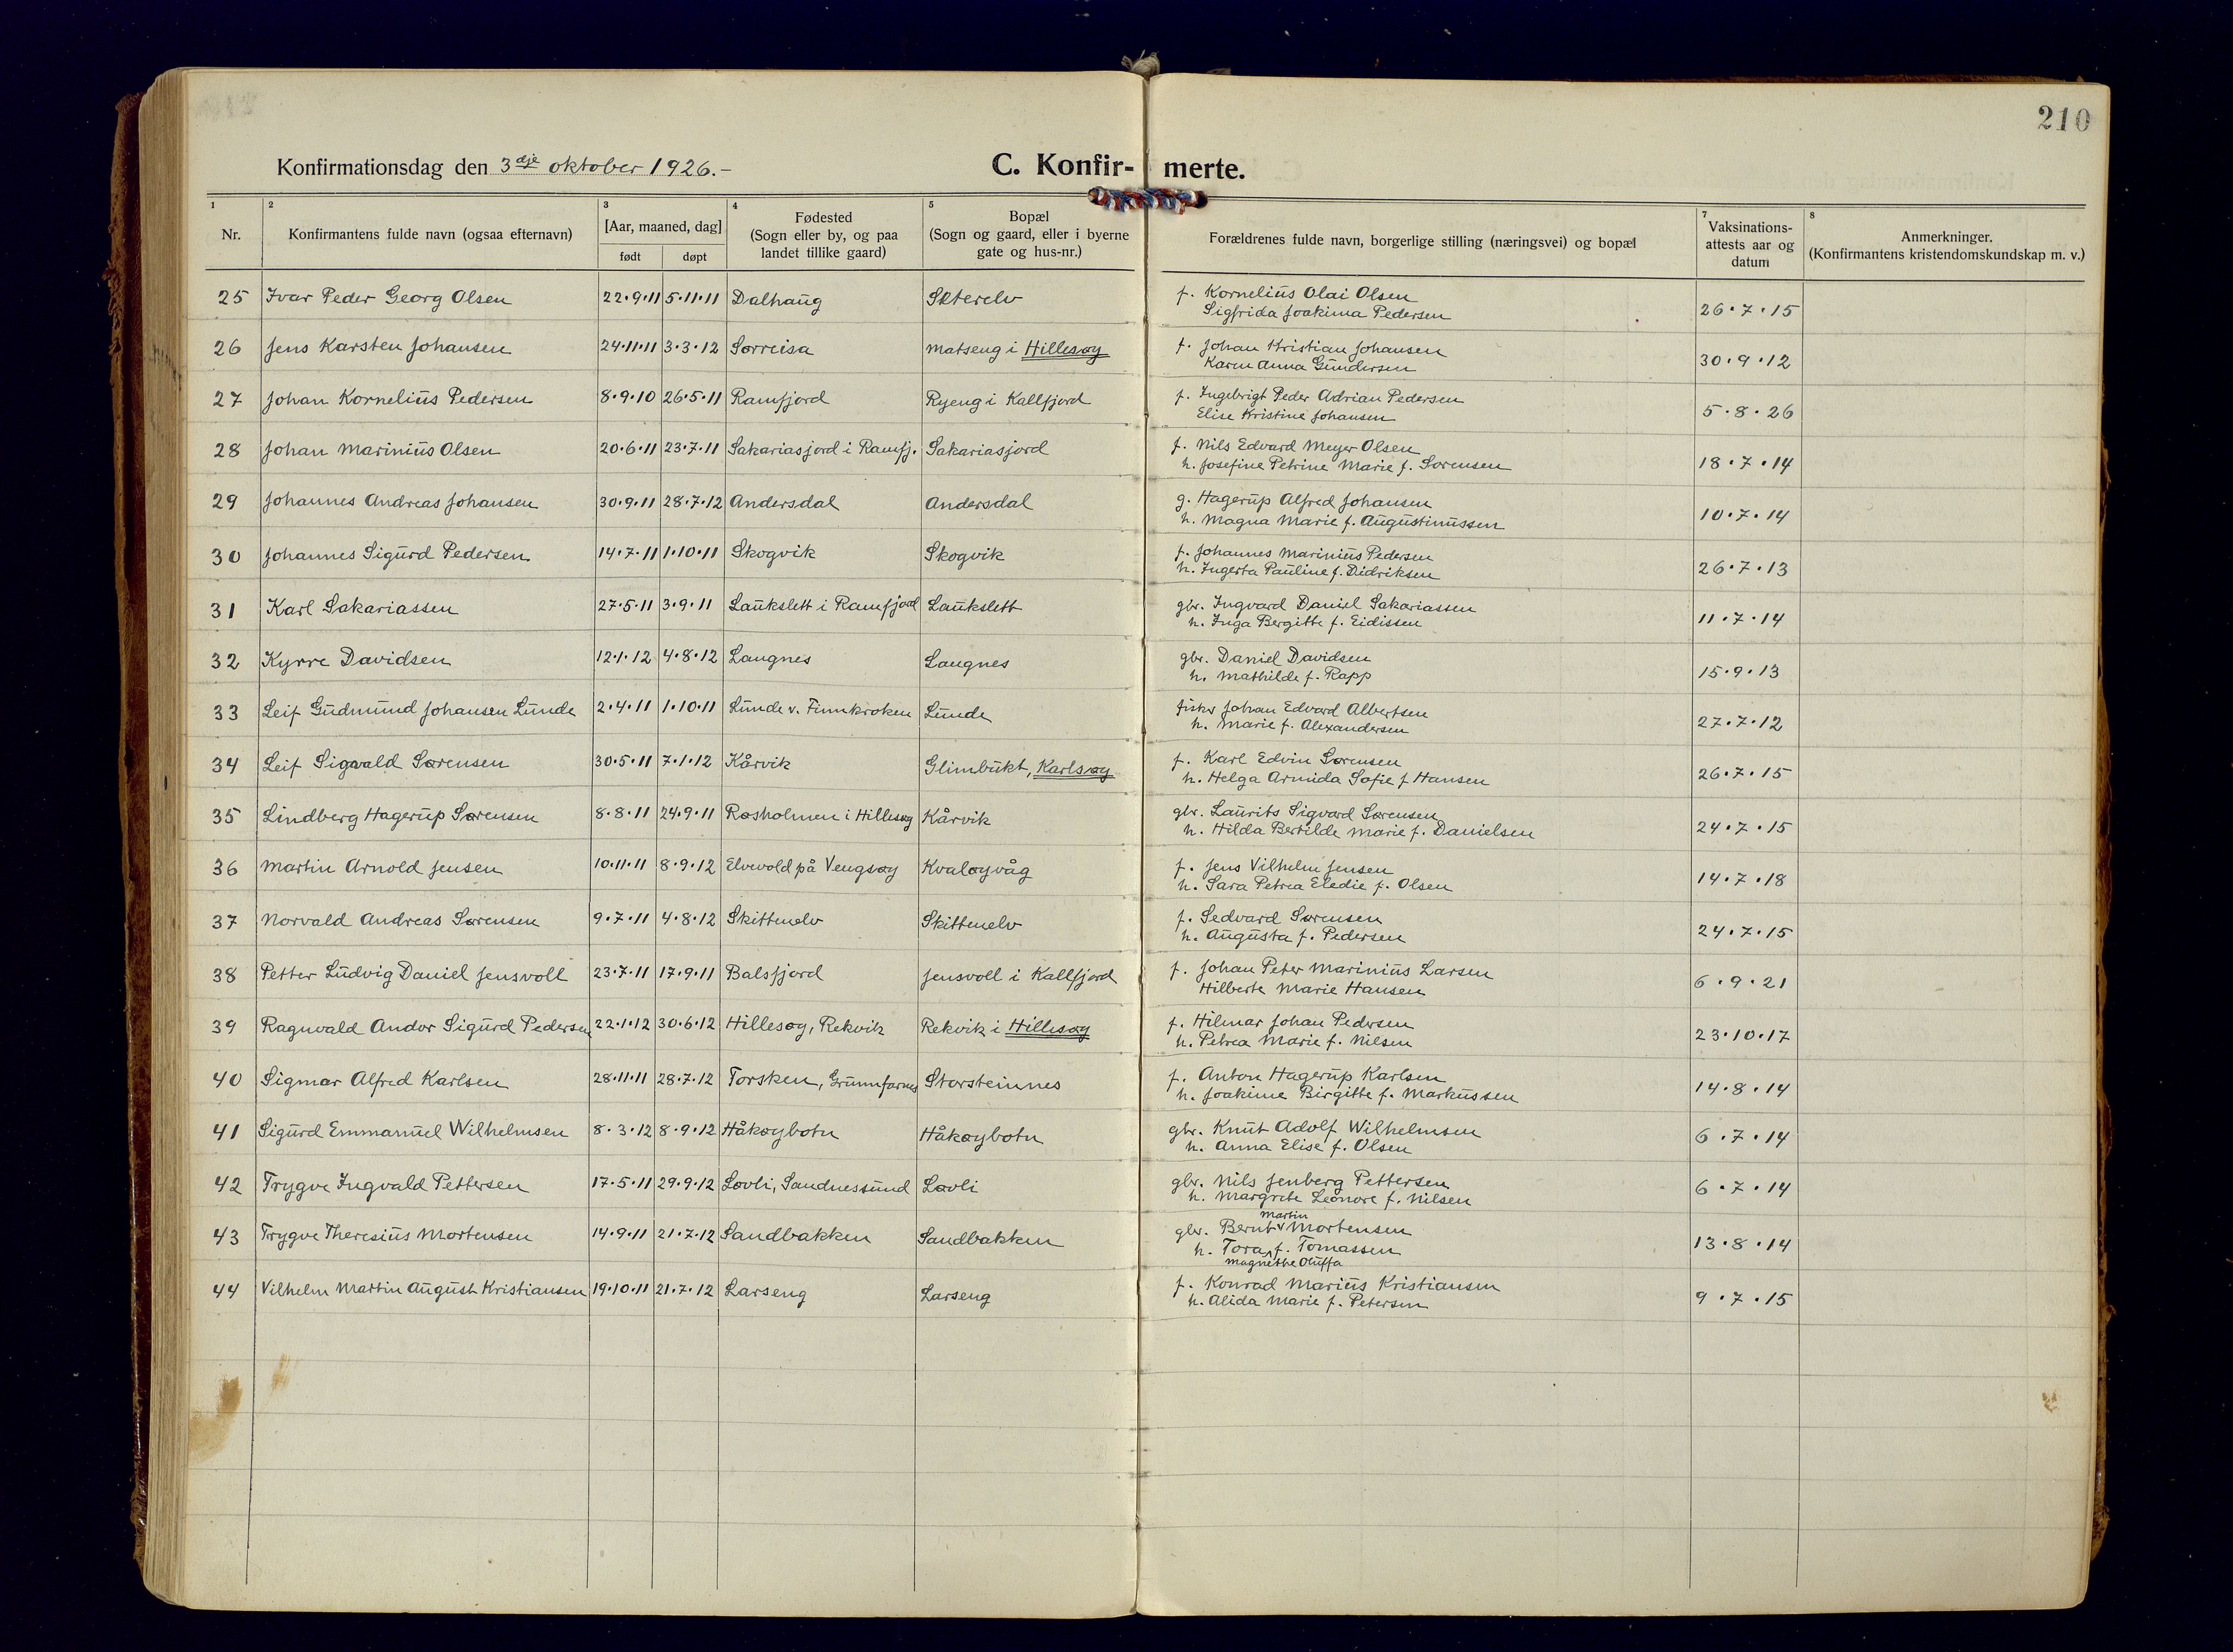 210
Konfirmationsdag den 3dje oktober 1926.-
C. Konfir- merte.
1 2 3 4 5 7 8
Nr. Konfirmantens fulde navn (ogsaa efternavn) [Aar, maaned, dag] født døpt Fødested (Sogn eller by, og paa landet tillike gaard) Bopæl (Sogn og gaard, eller i byerne gate og hus-nr.) Forældrenes fulde navn, borgerlige stilling (næringsvei) og bopæl Vaksinations-attests aar og datum Anmerkninger. (Konfirmantens kristendomskundskap m. v.)
25 Ivar Peder Georg Olsen 22.9.11 5.11.11 Dalhaug Sæterelv f. Kornelius Olai Olsen 26.7.15
Sigfrida Joakima Pedersen
26 Jens Karsten Johansen 24.11.11 3.3.12 Sørreisa Matseng i Hillesøy f. Johan Kristian Johansen 30.9.12
Karen Anna Gundersen
27 Johan Kornelius Pedersen 8.9.10 26.5.11 Ramfjord Ryeng i Kallfjord f. Ingebrigt Peder Adrian Pedersen 5.8.26
Elise Kristine Johansen
28 Johan Marinius Olsen 20.6.11 23.7.11 Sakariasjord i Ramfj. Sakariasjord f. Nils Edvard Meyer Olsen 18.7.14
h. Josefine Petrine Marie f. Sørensen
29 Johannes Andreas Johansen 30.9.11 28.7.12 Andersdal Andersdal g. Hagerup Alfred Johansen 10.7.14
h. Magna Marie f. Augustinussen
30 Johannes Sigurd Pedersen 14.7.11 1.10.11 Skogvik Skogvik f. Johannes Marinius Pedersen 26.7.13
h. Ingerta Pauline f. Didriksen
31 Karl Sakariassen 27.5.11 3.9.11 Laukslett i Ramfjord Laukslett gbr. Ingvard Daniel Sakariassen 11.7.14
h. Inga Bergitte f. Eidissen
32 Kyrre Davidsen 12.1.12 4.8.12 Langnes Langnes gbr. Daniel Davidsen 15.9.13
h. Mathilde f. Rapp
33 Leif Gudmund Johansen Lunde 2.4.11 1.10.11 Lunde v. Finnkroken Lunde fisker Johan Edvard Albertsen 27.7.12
h. Marie f. Alexandersen
34 Leif Sigvald Sørensen 30.5.11 7.1.12 Kårvik Glimbukt, Karlsøy f. Karl Edvin Sørensen 26.7.15
h. Helga Armida Sofie f Hansen
35 Lindberg Hagerup Sørensen 8.8.11 24.9.11 Røsholmen i Hillesøy Kårvik gbr. Laurits Sigvard Sørensen 24.7.15
h. Hilda Bertilde Marie f. Danielsen
36 Martin Arnold Jensen 10.11.11 8.9.12 Elvevold på Vengsøy Kvaløyvåg f. Jens Vilhelm Jensen 14.7.18
h. Sara Petrea Eledie f. Olsen
37 Norvald Andreas Sørensen 9.7.11 4.8.12 Skittenelv Skittenelv f. Sedvard Sørensen 24.7.15
h. Augusta f. Pedersen
38 Petter Ludvig Daniel Jensvoll 23.7.11 17.9.11 Balsfjord Jensvoll i Kallfjord f. Johan Peter Marinius Larsen 6.9.21
Hilberte Marie Hansen
39 Ragnvald Andor Sigurd Pedersen 22.1.12 30.6.12 Hillesøy, Rekvik Rekvik i Hillesøy f. Hilmar Johan Pedersen 23.10.17
h. Petrea Marie f. Nilsen
40 Sigmar Alfred Karlsen 28.11.11 28.7.12 Torsken, Grunnfarnes Storsteinnes f. Anton Hagerup Karlsen 14.8.14
h. Joakime Birgitte f. Markussen
41 Sigurd Emmanuel Wilhelmsen 8.3.12 8.9.12 Håkøybotn Håkøybotn gbr. Knut Adolf Wilhelmsen 6.7.14
h. Anna Elise f. Olsen
42 Trygve Ingvald Pettersen 17.5.11 29.9.12 Løvli, Sandnessund Løvli gbr. Nils Jenberg Pettersen 6.7.14
h. Margrete Leonore f. Nilsen
43 Trygve Theresius Mortensen 14.9.11 21.7.12 Sandbakken Sandbakken gbr. Bernt Martin Mortensen 13.8.14
h. Tora Magnethe Oluffa f. Tomassen
44 Vilhelm Martin August Kristiansen 19.10.11 21.7.12 Larseng Larseng f. Konrad Marius Kristiansen 9.7.15
h. Alida Marie f. Petersen